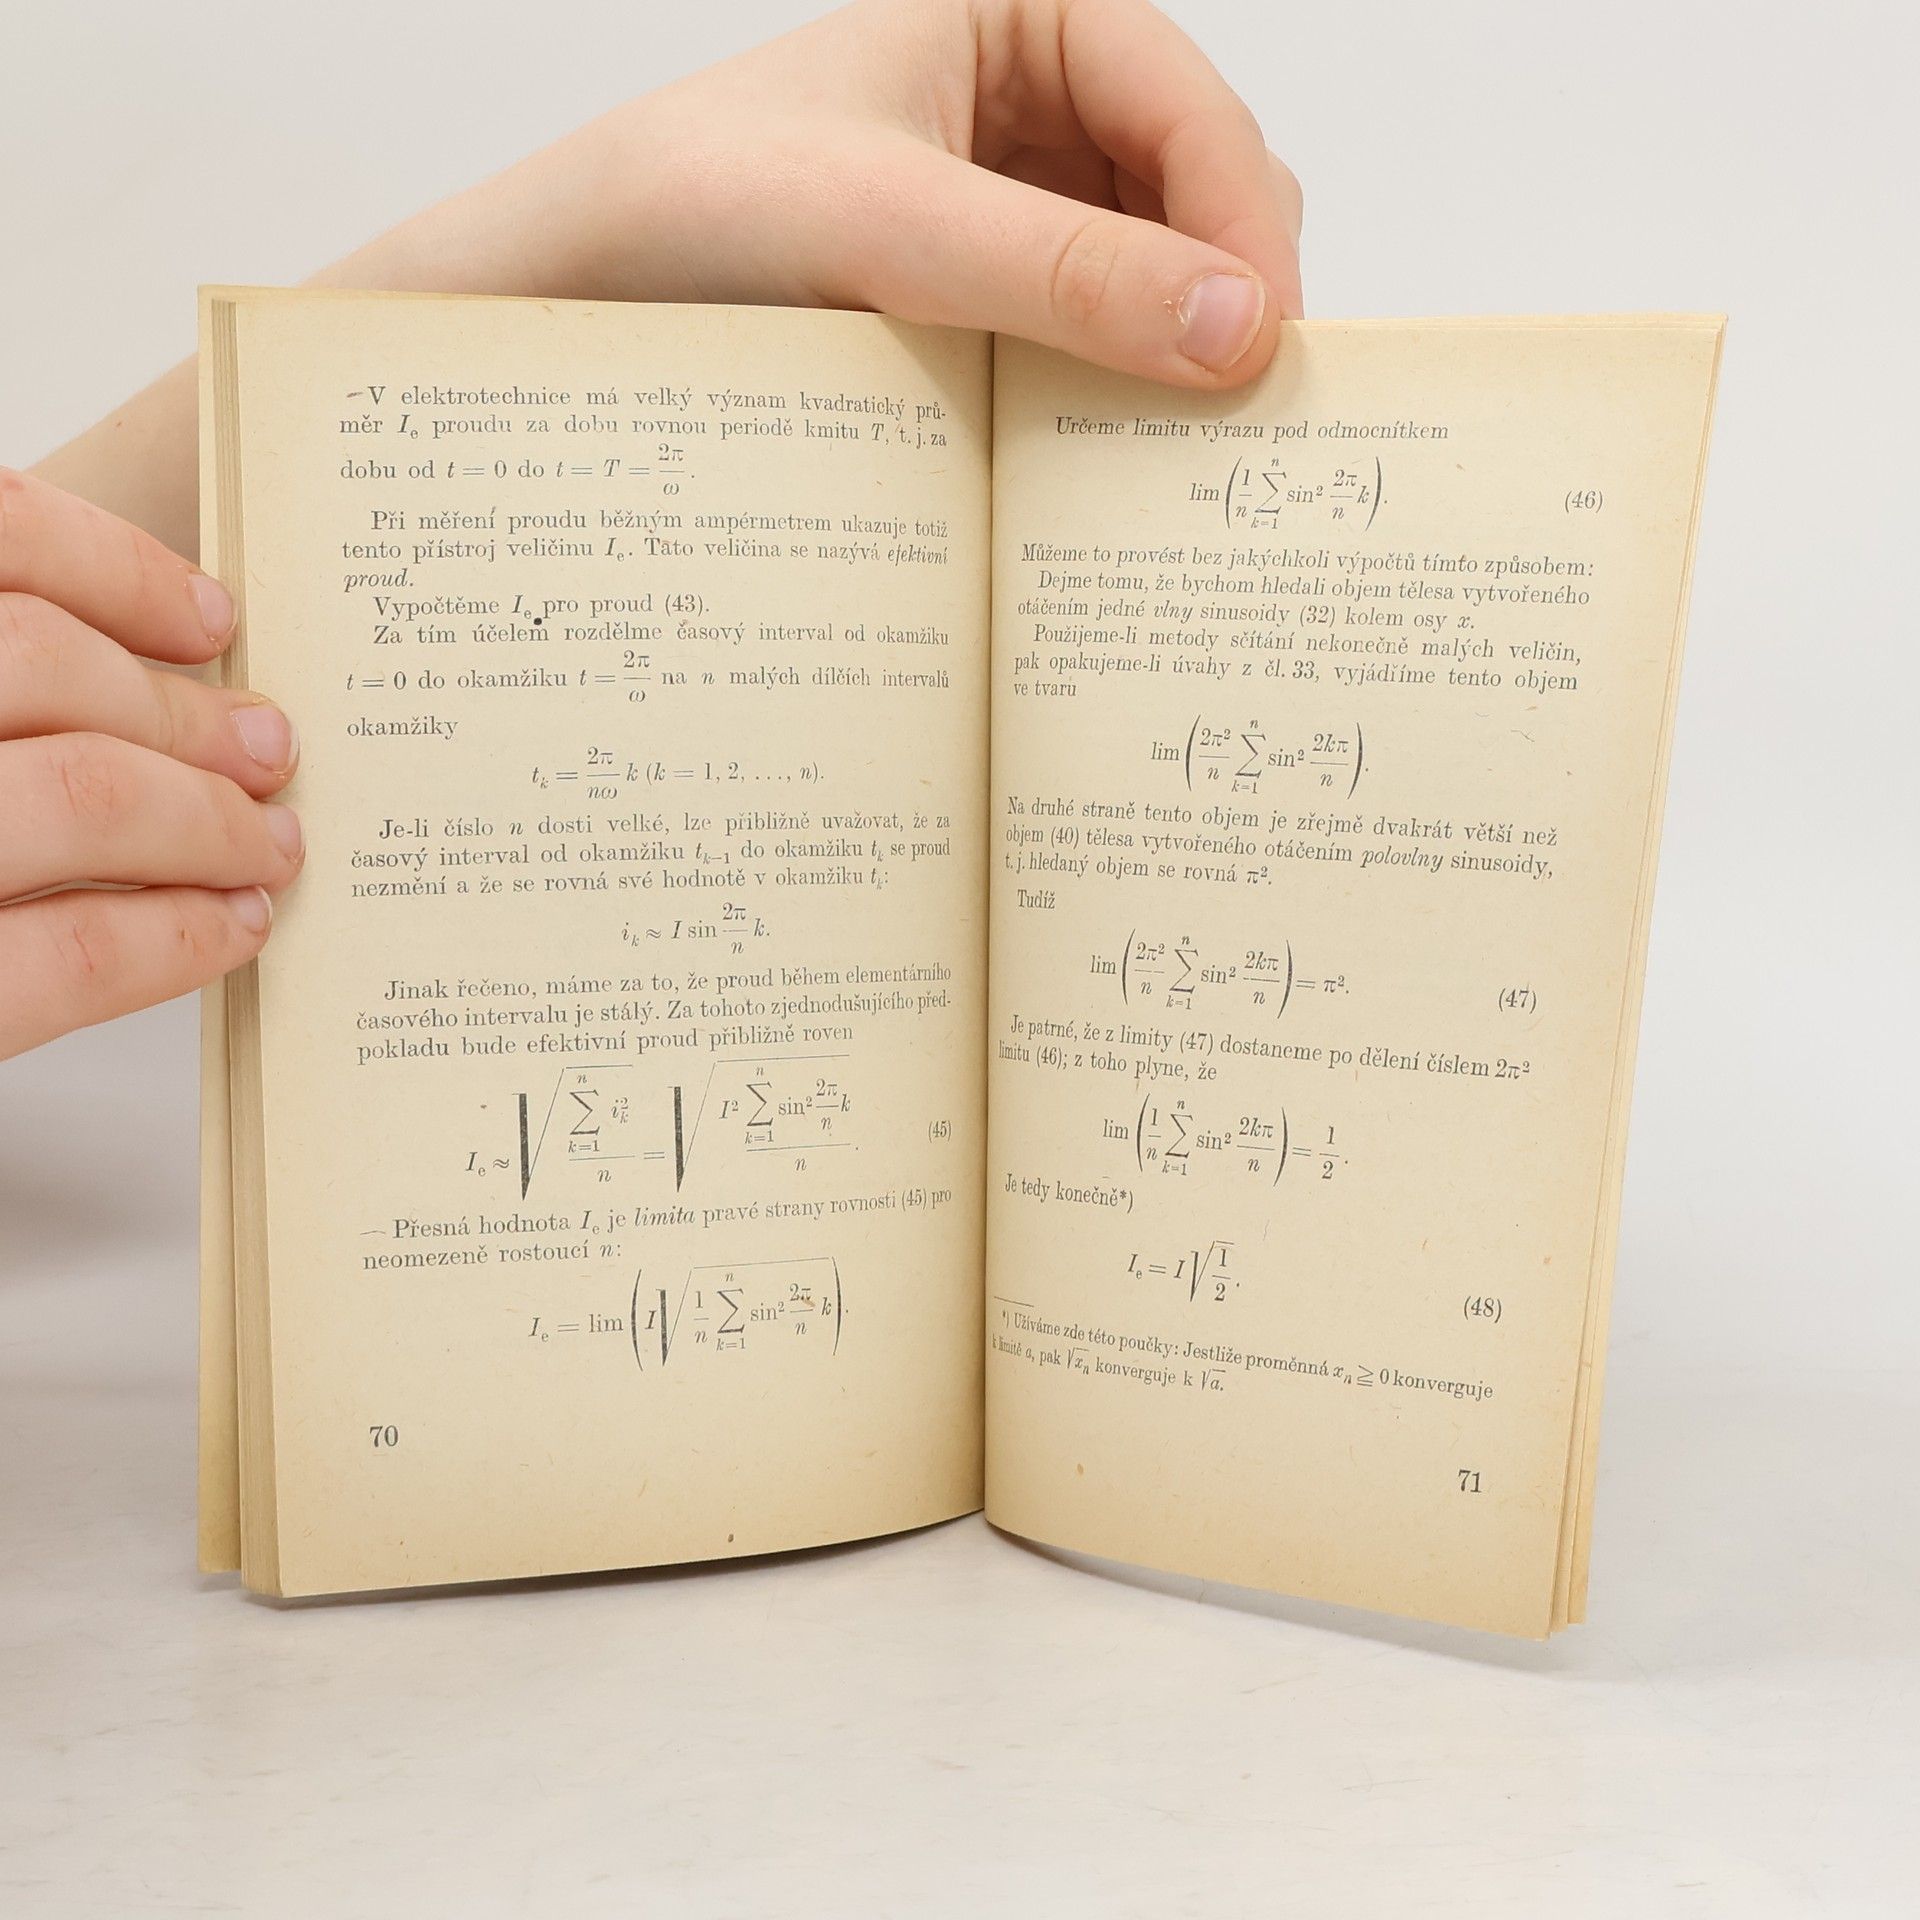 V elektrotechnice má velký význam kvadratický prů-
měr Iₑ proudu za dobu rovnou periodě kmitu T, t. j. za
dobu od t = 0 do t = T = 2π/ω.
Při měření proudu běžným ampérmetrem ukazuje totiž
tento přístroj veličinu Iₑ. Tato veličina se nazývá efektivní
proud.
Vypočtěme Iₑ pro proud (43).
Za tím účelem rozdělme časový interval od okamžiku
t = 0 do okamžiku t = 2π/ω na n malých dílčích intervalů
okamžiky
tₖ = 2π/nω k (k = 1, 2, ..., n).
Je-li číslo n dosti velké, lze přibližně uvažovat, že za
časový interval od okamžiku tₖ₋₁ do okamžiku tₖ se proud
nezmění a že se rovná své hodnotě v okamžiku tₖ:
iₖ ≈ I sin 2π/n k.
Jinak řečeno, máme za to, že proud během elementárního
časového intervalu je stálý. Za tohoto zjednodušujícího před-
pokladu bude efektivní proud přibližně roven
Iₑ ≈ √(∑ₖ₌₁ⁿ iₖ² / n) = √(I² ∑ₖ₌₁ⁿ sin² 2π/n k / n). (45)
— Přesná hodnota Iₑ je limita pravé strany rovnosti (45) pro
neomezeně rostoucí n:
Iₑ = lim (I √(1/n ∑ₖ₌₁ⁿ sin² 2π/n k)).
70
Určeme limitu výrazu pod odmocnítkem
lim (1/n ∑ₖ₌₁ⁿ sin² 2π/n k). (46)
Můžeme to provést bez jakýchkoli výpočtů tímto způsobem:
Dejme tomu, že bychom hledali objem tělesa vytvořeného
otáčením jedné vlny sinusoidy (32) kolem osy x.
Použijeme-li metody sčítání nekonečně malých veličin,
pak opakujeme-li úvahy z čl. 33, vyjádříme tento objem
ve tvaru
lim (2π²/n ∑ₖ₌₁ⁿ sin² 2kπ/n).
Na druhé straně tento objem je zřejmě dvakrát větší než
objem (40) tělesa vytvořeného otáčením polovlny sinusoidy,
t. j. hledaný objem se rovná π².
Tudíž
lim (2π²/n ∑ₖ₌₁ⁿ sin² 2kπ/n) = π². (47)
Je patrné, že z limity (47) dostaneme po dělení číslem 2π²
limitu (46); z toho plyne, že
lim (1/n ∑ₖ₌₁ⁿ sin² 2kπ/n) = 1/2.
Je tedy konečně*)
Iₑ = I √(1/2). (48)
*) Užíváme zde této poučky: Jestliže proměnná xₙ ≧ 0 konverguje
k limitě a, pak √xₙ konverguje k √a.
71